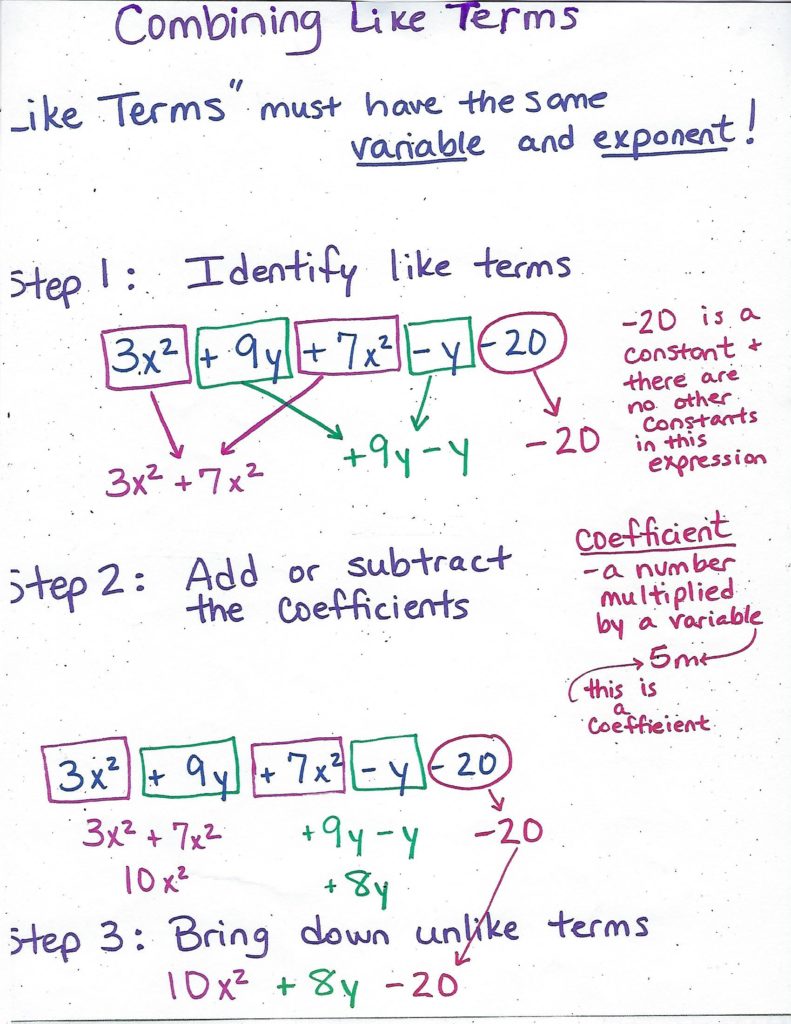 Combining Like Terms
ike Terms" must have the same
variable and exponent!
Step 1: Identify like terms
3x² + 9y + 7x² - y - 20
3x² + 7x² +9y - y -20
-20 is a
constant +
there are
no other
constants
in this
expression
Step 2: Add or subtract
the coefficients
Coefficient
- a number
multiplied
by a variable
5m
this is
a
coeffieient
3x² + 9y + 7x² - y - 20
3x² + 7x² +9y - y -20
10x² +8y
Step 3: Bring down unlike terms
10x² + 8y - 20